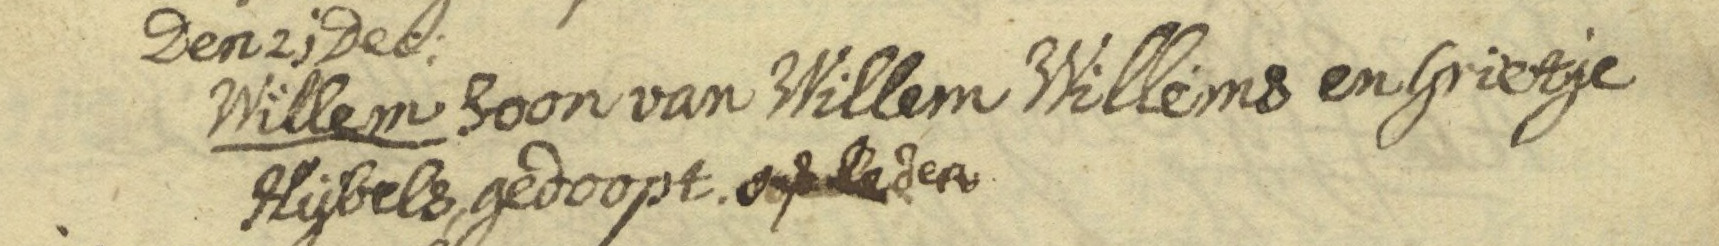 Den 21 Dec:
Willem Soon van Willem Willems en Grietje
Hijbels, gedoopt.